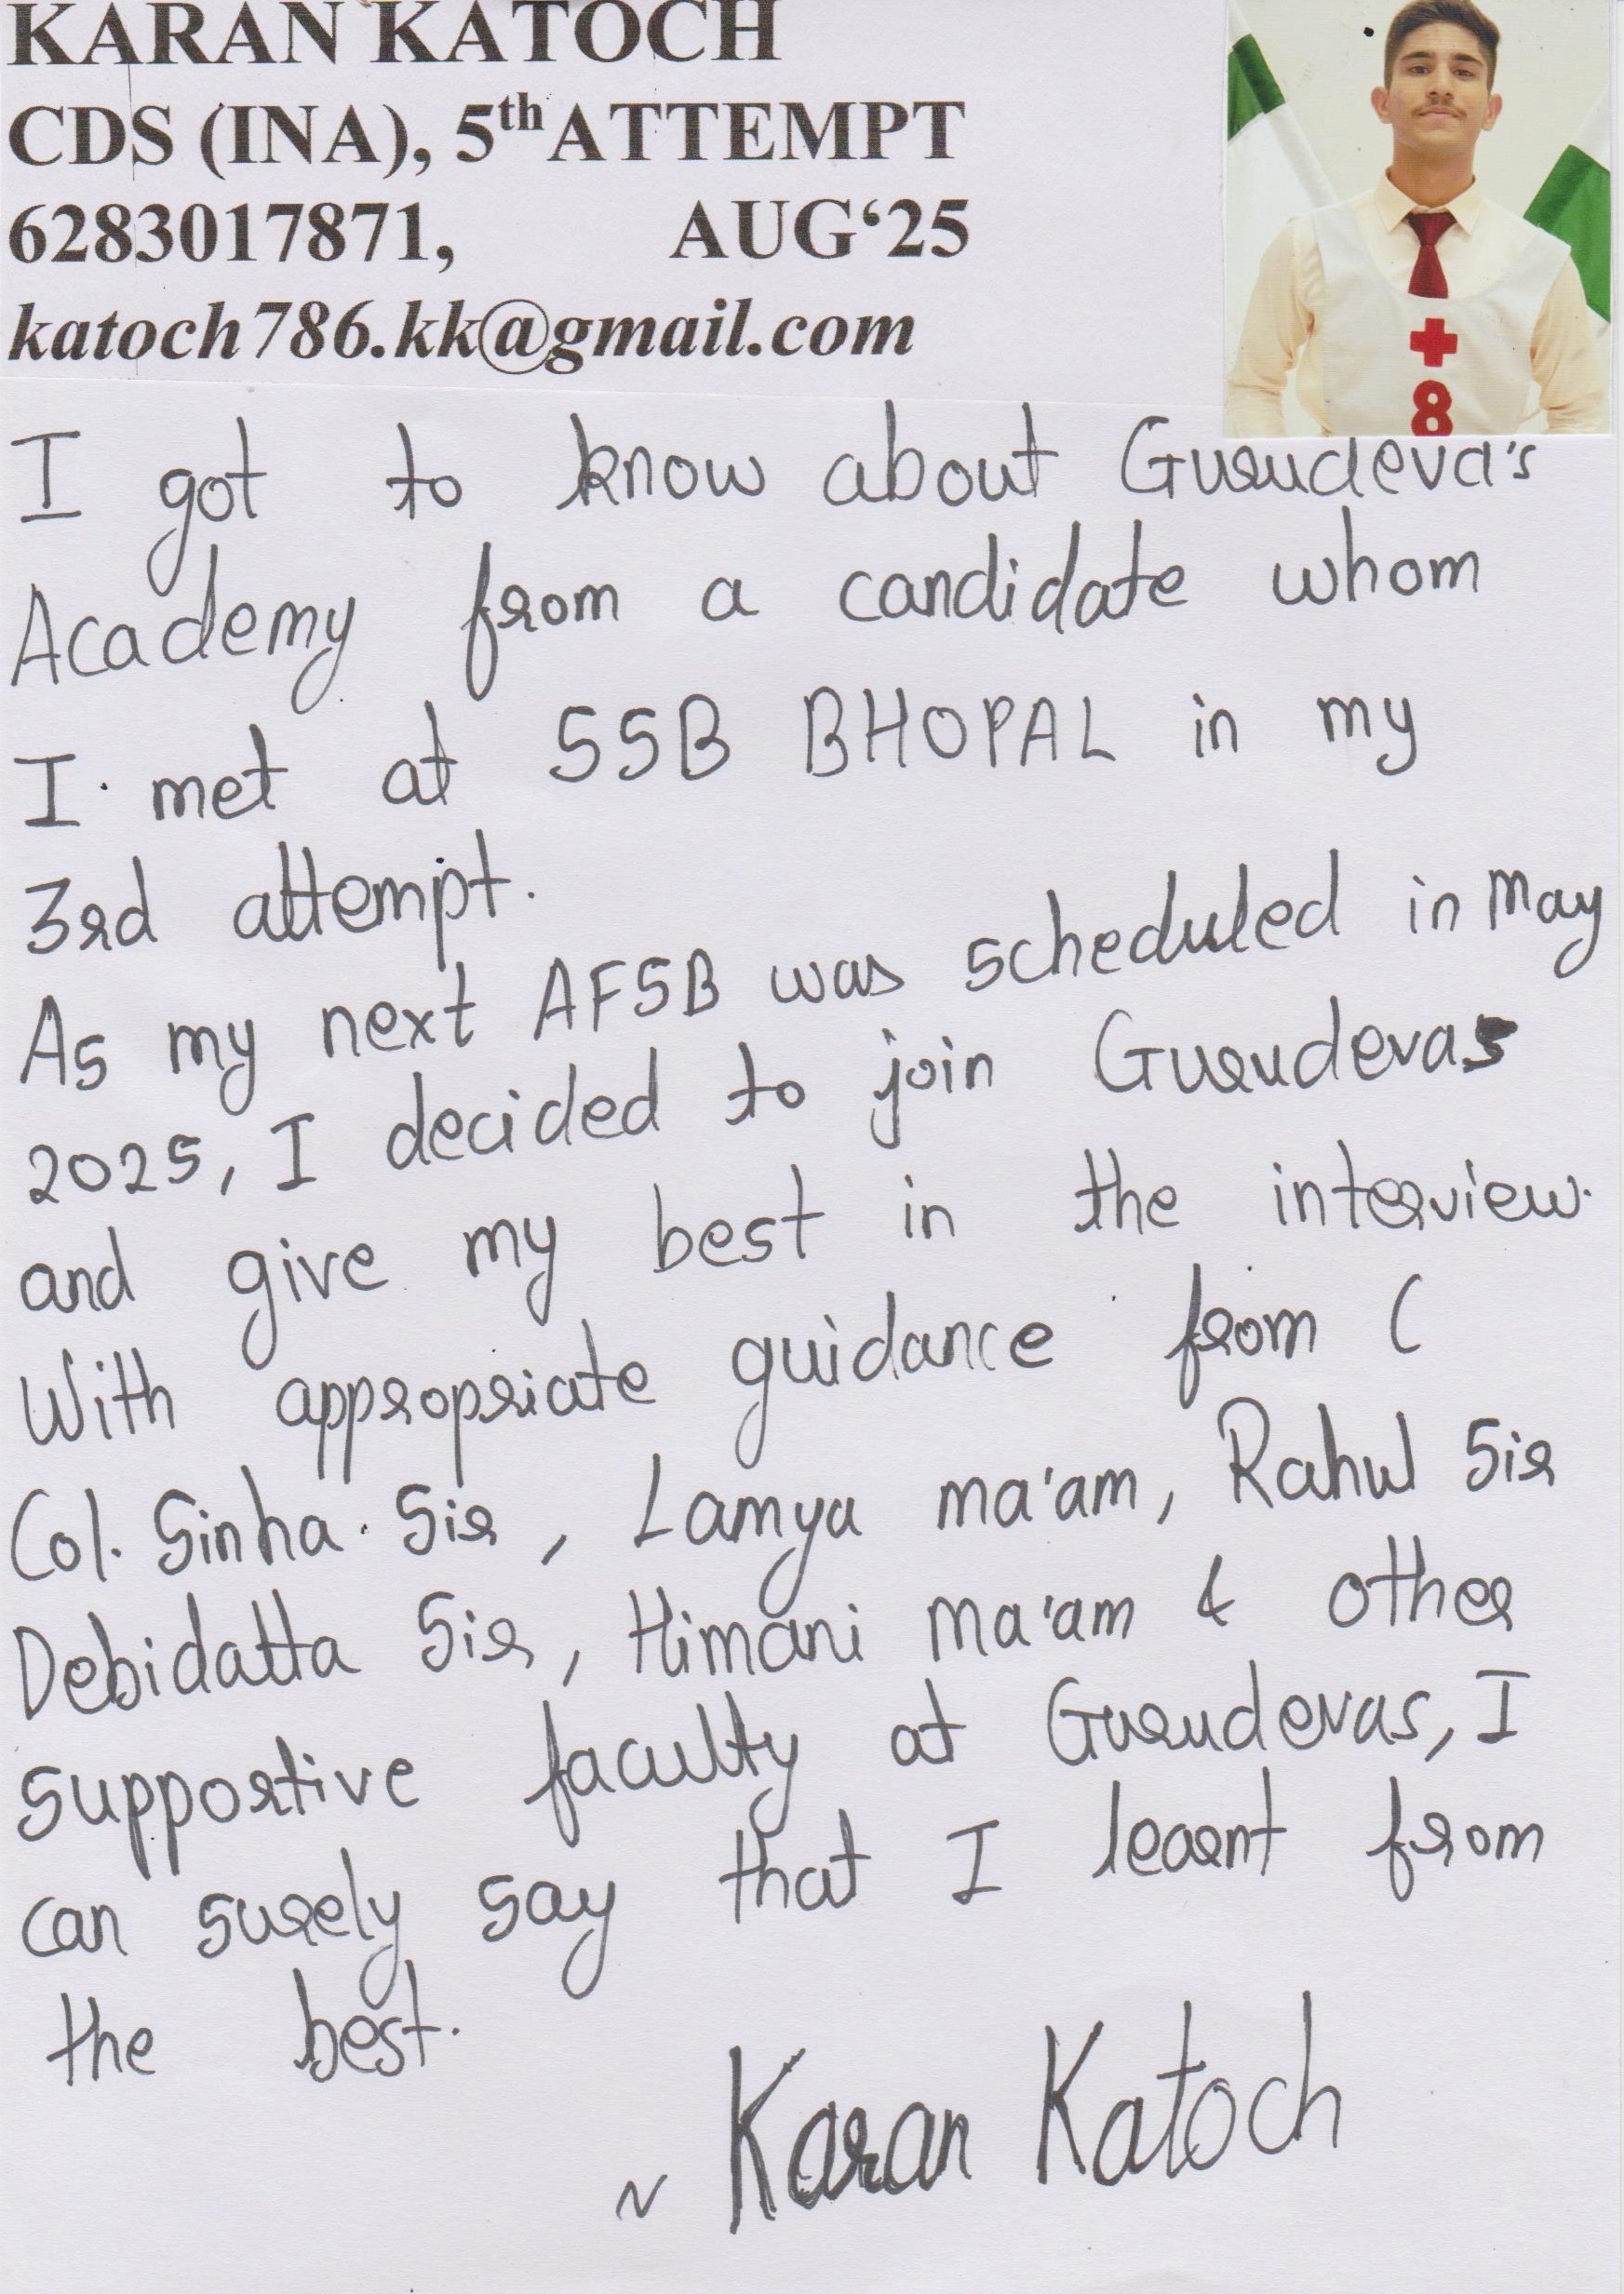 KARAN KATOCH
CDS (INA), 5th ATTEMPT
6283017871, AUG‘25
katoch786.kk@gmail.com
+
8
I got to know about Gurudeva's
Academy from a candidate whom
I met at SSB BHOPAL in my
3rd attempt.
As my next AFSB was scheduled in May
2025, I decided to join Gurudevas
and give my best in the interview.
With appropriate guidance from (
Col. Sinha Sir, Lamya ma'am, Rahul Sir
Debidatta Sir, Himani ma'am & other
supportive faculty at Gurudevas, I
can surely say that I learnt from
the best.
~ Karan Katoch